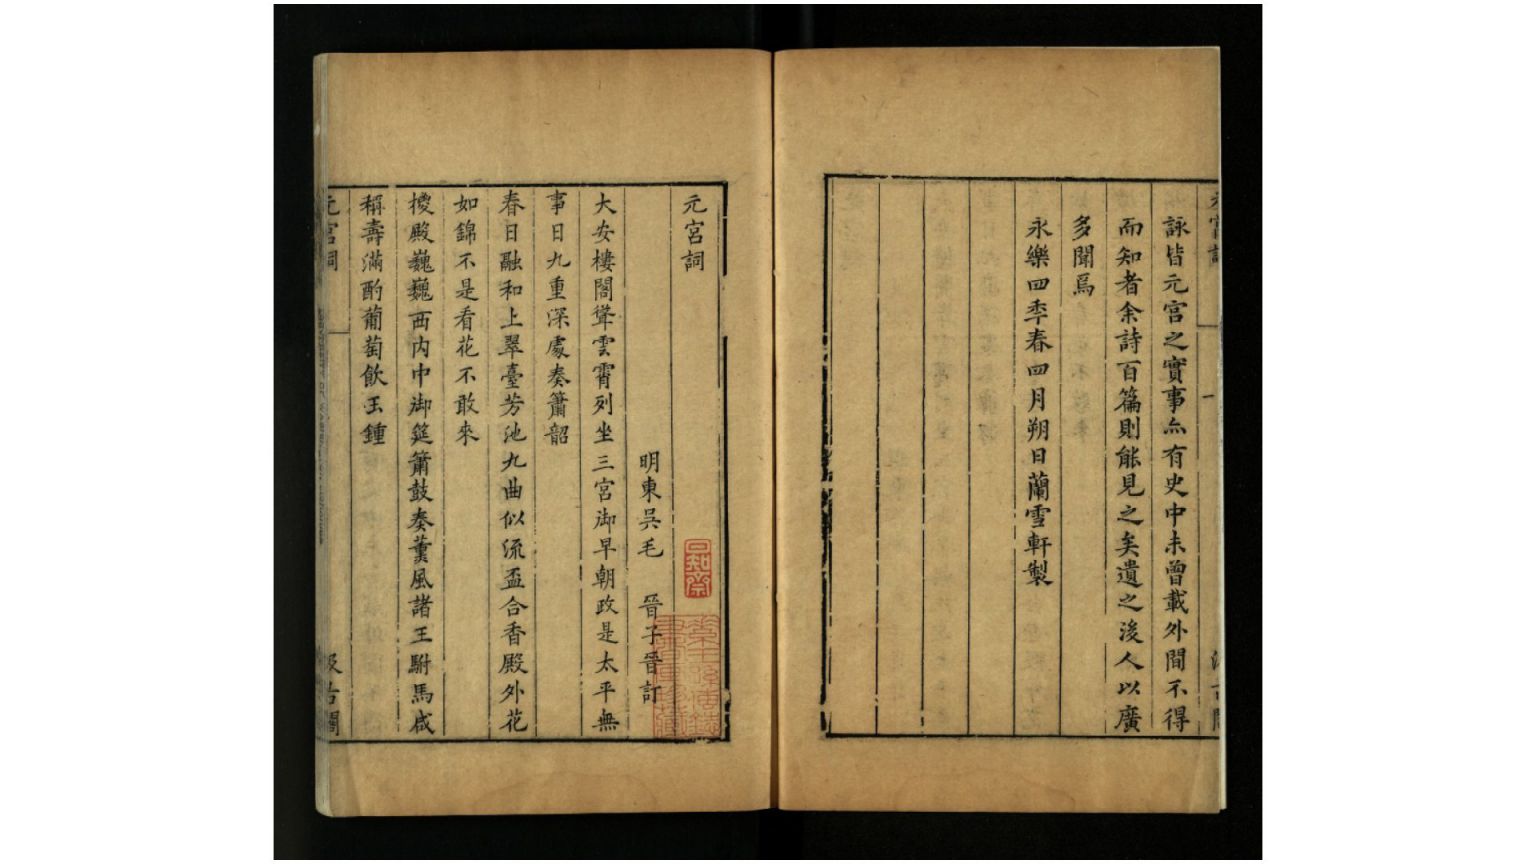 詠皆元宮之實事亦有史中未曾載外間不得
而知者余詩百篇則能見之矣遺之後人以廣
多聞焉
永樂四季春四月朔日蘭雪軒製
元宮詞
明東吳毛　晉子晉訂
大安樓閣聳雲霄列坐三宮御早朝政是太平無
事日九重深處奏簫韶
春日融和上翠臺芳池九曲似流盃合香殿外花
如錦不是看花不敢來
㮶殿巍巍西內中御筵簫鼓奏薰風諸王駙馬咸
稱壽滿酌葡萄飲玉鍾
元宮詞
汲古閣
日知齋